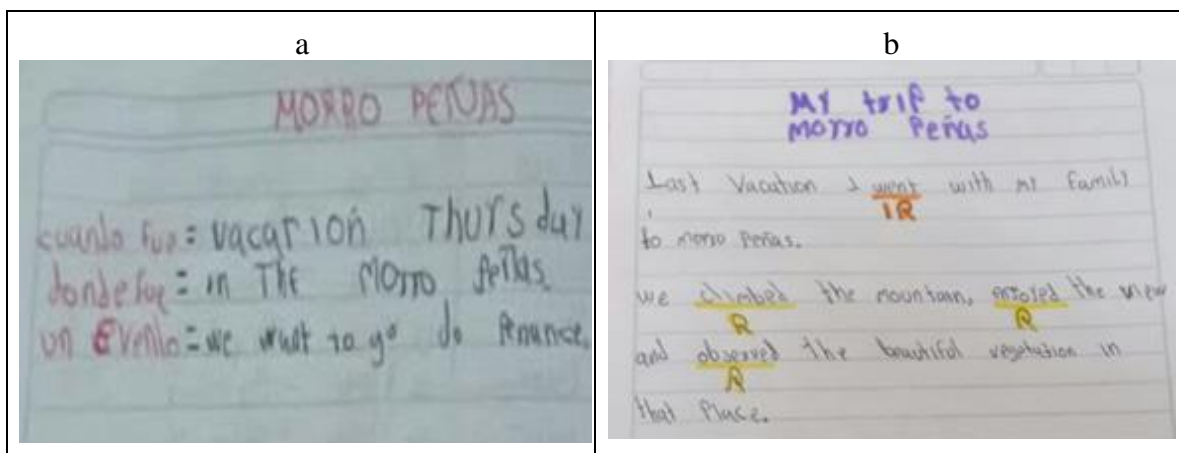 a
MORRO PEÑAS
cuando fue = vacation Thursday
donde fue = in The Morro Peñas
un Evento = we must to go do Penance.
b
MY trip to
morro Peñas
Last Vacation I went with my Family
IR
to morro Peñas.
we climbed the mountain, enjoyed the view
R R
and observed the beautiful vegetation in
R
that Place.